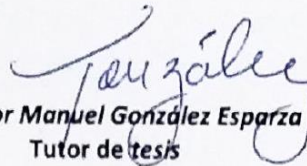 González
or Manuel González Esparza
Tutor de tesis